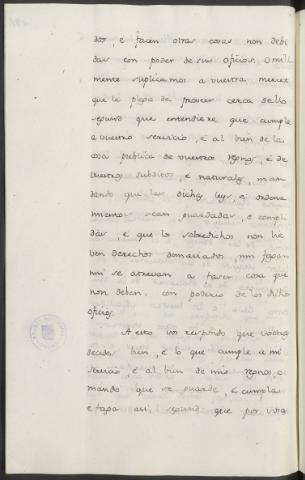 dos, e facen otras cosas non debi
das con poder de sus oficios. Omill
mente suplicamos a vuestra merced
que le plega de proveer cerca dello
segund que entendiere que cumple
a vuestro servicio, e al bien de la
cosa publica de vuestros regnos, e de
vuestros subditos, e naturales, man
dando que las dichas leys, e ordena
mientos sean guardadas, e compli
das, e que los sobredichos non lie
ven derechos demasiados, nin fagan
nin se atrevan a facer cosa que
non deben, con poderio de los dichos
oficios.
A esto vos respondo que vosotros
decides bien, e lo que cumple a mi
servicio, e al bien de mis regnos, e
mando que se guarde, e cumpla
e faga asi, segund que por vos